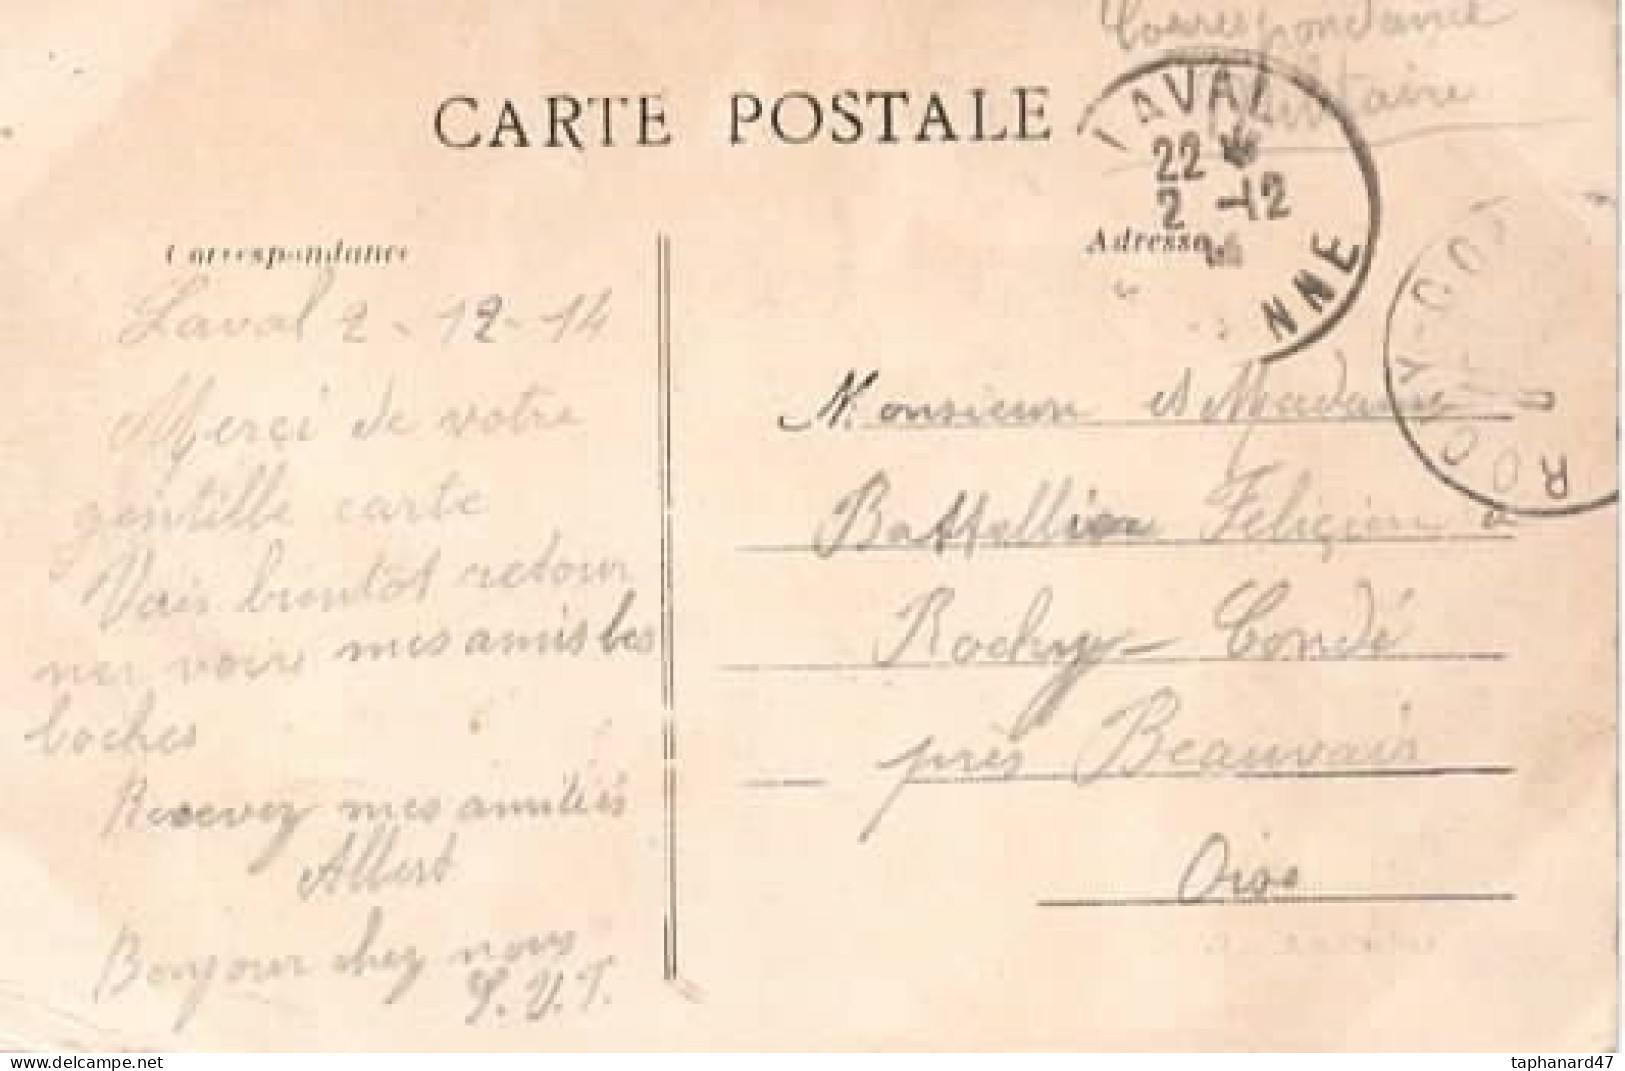 Correspondance
Militaire
CARTE POSTALE
LAVAL
22
2 -12
NNE
Correspondance
Adresse
Laval 2-12-14
Merci de votre
gentille carte
Vais bientôt retour
ner voire mes amis les
boches
Recevez mes amitiés
Albert
Bonjour chez nous
S.V.T.
Monsieur et Madame
Battellier Feligien à
Rochy-Condé
près Beauvais
Oise
ROCHY-CON
delcampe.net
taphanard47